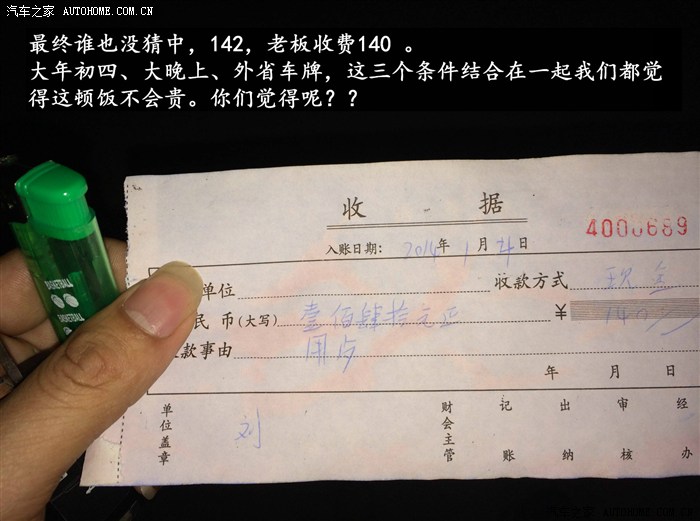 汽车之家 AUTOHOME.COM.CN
最终谁也没猜中，142，老板收费140 。
大年初四、大晚上、外省车牌，这三个条件结合在一起我们都觉
得这顿饭不会贵。你们觉得呢？？
收 据
4000689
入账日期： 2014年 1 月 日
单位 收款方式 现金
民 币(大写) 壹佰肆拾元正 ¥ 140
款事由 用
年 月 日
单位盖章 刘 财会主管 记账 出纳 审核 经办
BASKETBALL